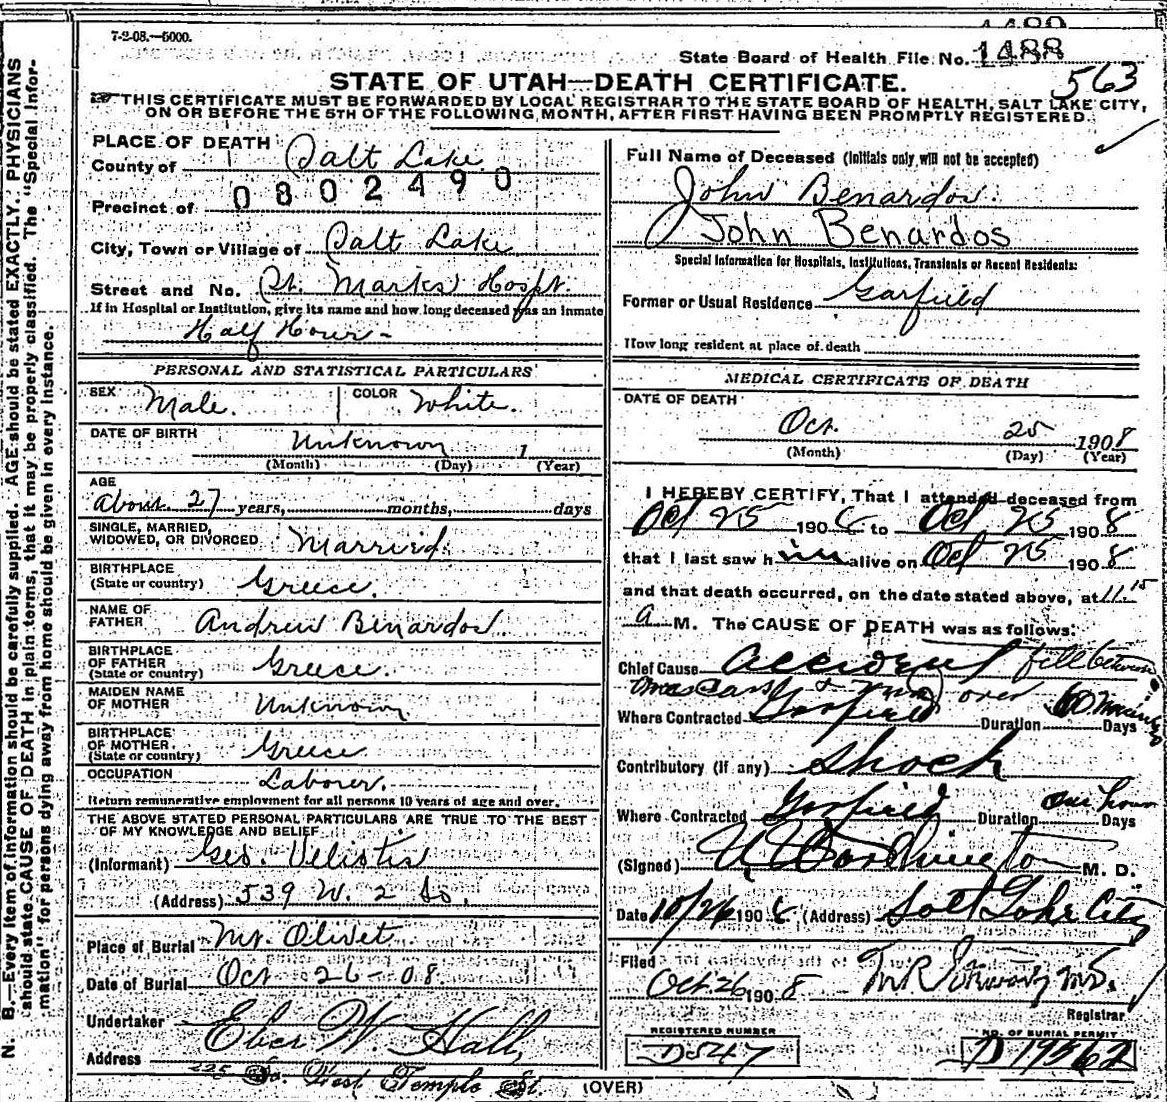 7-2-08.—5000.
1489
State Board of Health File No. 1488
STATE OF UTAH—DEATH CERTIFICATE.
563
THIS CERTIFICATE MUST BE FORWARDED BY LOCAL REGISTRAR TO THE STATE BOARD OF HEALTH, SALT LAKE CITY,
ON OR BEFORE THE 5TH OF THE FOLLOWING MONTH, AFTER FIRST HAVING BEEN PROMPTLY REGISTERED.
N. B.—Every item of information should be carefully supplied. AGE should be stated EXACTLY. PHYSICIANS
should state CAUSE OF DEATH in plain terms, that it may be properly classified. The "Special Infor-
mation" for persons dying away from home should be given in every instance.
PLACE OF DEATH
County of Salt Lake
0802490
Precinct of
City, Town or Village of Salt Lake
Street and No. St. Marks Hospt.
If in Hospital or Institution, give its name and how long deceased was an inmate
Half Hour -
PERSONAL AND STATISTICAL PARTICULARS
SEX Male. COLOR White.
DATE OF BIRTH Unknown 1
(Month) (Day) (Year)
AGE
About 27 years, months, days
SINGLE, MARRIED,
WIDOWED, OR DIVORCED Married.
BIRTHPLACE
(State or country) Greece.
NAME OF
FATHER Andrew Benardos
BIRTHPLACE
OF FATHER
(State or country) Greece.
MAIDEN NAME
OF MOTHER Unknown
BIRTHPLACE
OF MOTHER
(State or country) Greece
OCCUPATION Laborer.
Return remunerative employment for all persons 10 years of age and over.
THE ABOVE STATED PERSONAL PARTICULARS ARE TRUE TO THE BEST
OF MY KNOWLEDGE AND BELIEF
(Informant) Geo. Velistis
(Address) 539 W. 2 So.
Place of Burial Mt. Olivet
Date of Burial Oct 26-08.
Undertaker Eber W. Hall,
Address 225 So. West Temple St.
Full Name of Deceased (Initials only will not be accepted)
John Benardos.
John Benardos
Special Information for Hospitals, Institutions, Transients or Recent Residents:
Former or Usual Residence Garfield
How long resident at place of death
MEDICAL CERTIFICATE OF DEATH
DATE OF DEATH
Oct. 25 1908
(Month) (Day) (Year)
I HEREBY CERTIFY, That I attended deceased from
Oct 25 1908 to Oct 25 1908
that I last saw him alive on Oct 25 1908
and that death occurred, on the date stated above, at 11.15
a M. The CAUSE OF DEATH was as follows:
Chief Cause Accident fell between
cars & run over 60 minutes
Where Contracted Garfield Duration Days
Contributory (if any) Shock
Where Contracted Garfield Duration one hour Days
(Signed) Worthington M. D.
Date 10/26 1908 (Address) Salt Lake City
Filed
Oct 26 1908 M.D.
Registrar
REGISTERED NUMBER
D547
NO. OF BURIAL PERMIT
D 19562
(OVER)